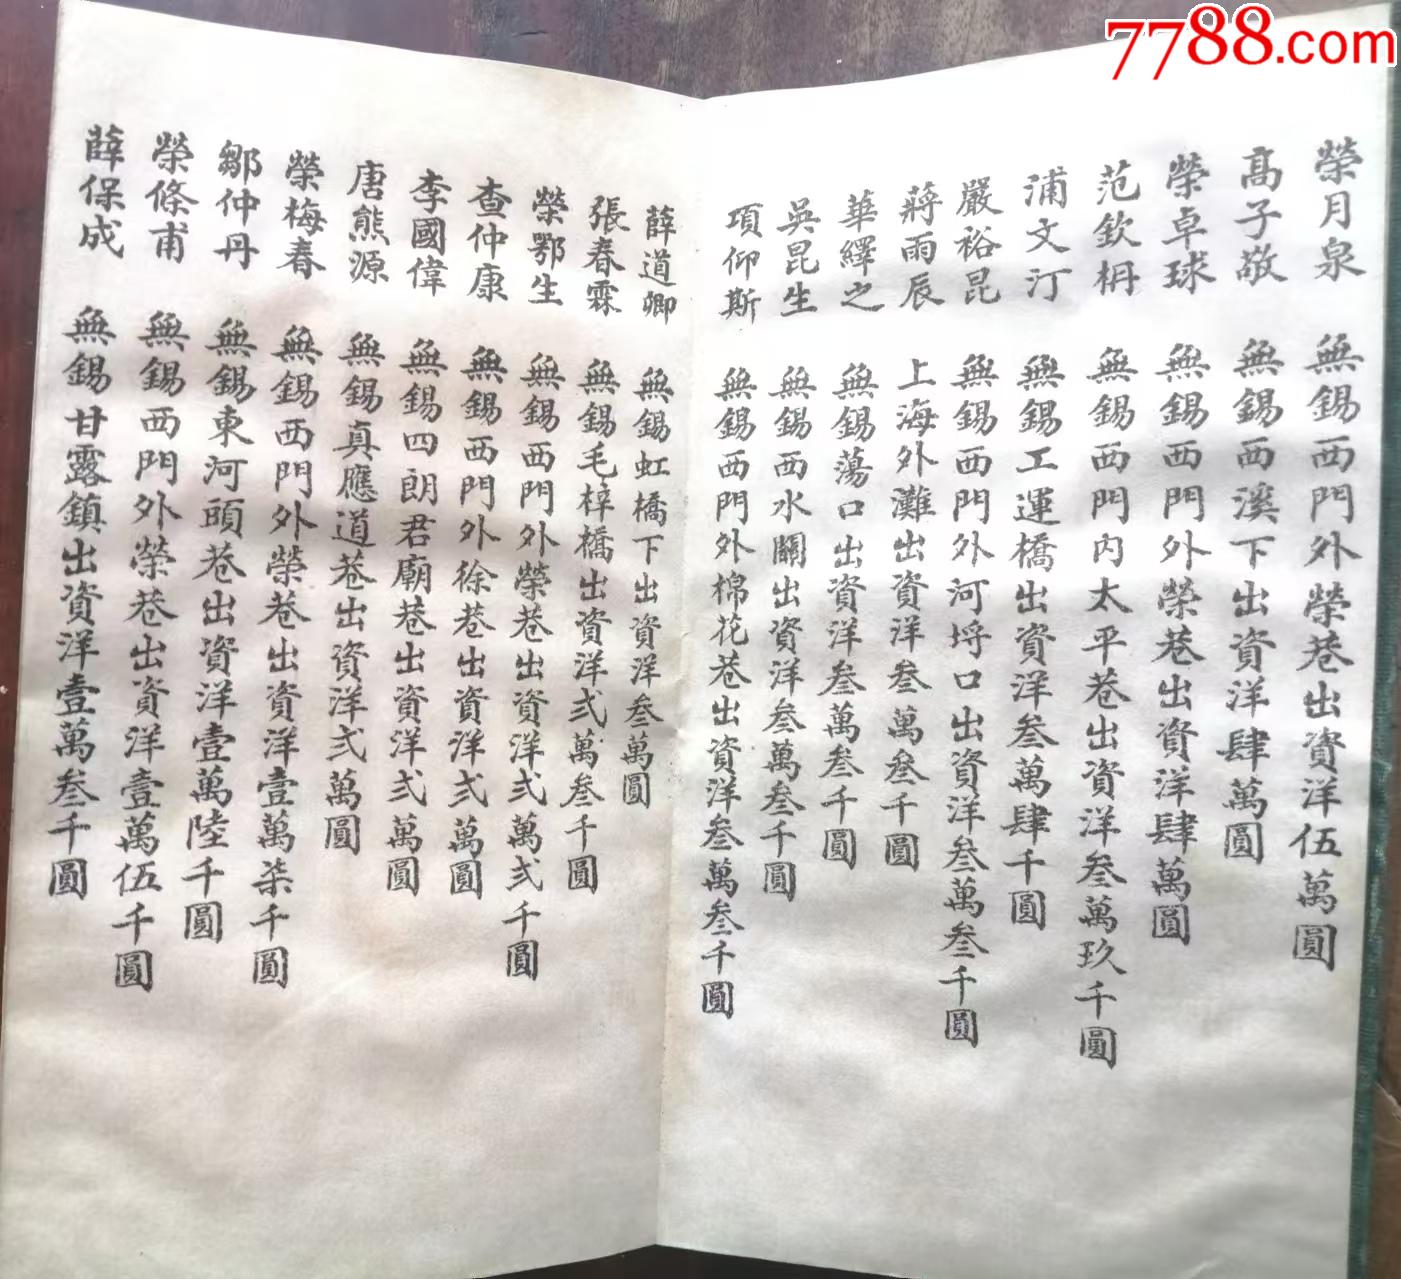 7788.com
榮月泉 無錫西門外榮巷出資洋伍萬圓
高子敬 無錫西溪下出資洋肆萬圓
榮卓球 無錫西門外榮巷出資洋肆萬圓
范欽枬 無錫西門內太平巷出資洋叁萬玖千圓
浦文汀 無錫工運橋出資洋叁萬肆千圓
嚴裕昆 無錫西門外河埒口出資洋叁萬叁千圓
蔣雨辰 上海外灘出資洋叁萬叁千圓
華繹之 無錫蕩口出資洋叁萬叁千圓
吳昆生 無錫西水關出資洋叁萬叁千圓
項仰斯 無錫西門外棉花巷出資洋叁萬叁千圓
薛道卿 無錫虹橋下出資洋叁萬圓
張春霖 無錫毛梓橋出資洋弍萬叁千圓
榮鄂生 無錫西門外榮巷出資洋弍萬弍千圓
查仲康 無錫西門外徐巷出資洋弍萬圓
李國偉 無錫四朗君廟巷出資洋弍萬圓
唐熊源 無錫真應道巷出資洋弍萬圓
榮梅春 無錫西門外榮巷出資洋壹萬柒千圓
鄒仲丹 無錫東河頭巷出資洋壹萬陸千圓
榮條甫 無錫西門外榮巷出資洋壹萬伍千圓
薛保成 無錫甘露鎮出資洋壹萬叁千圓